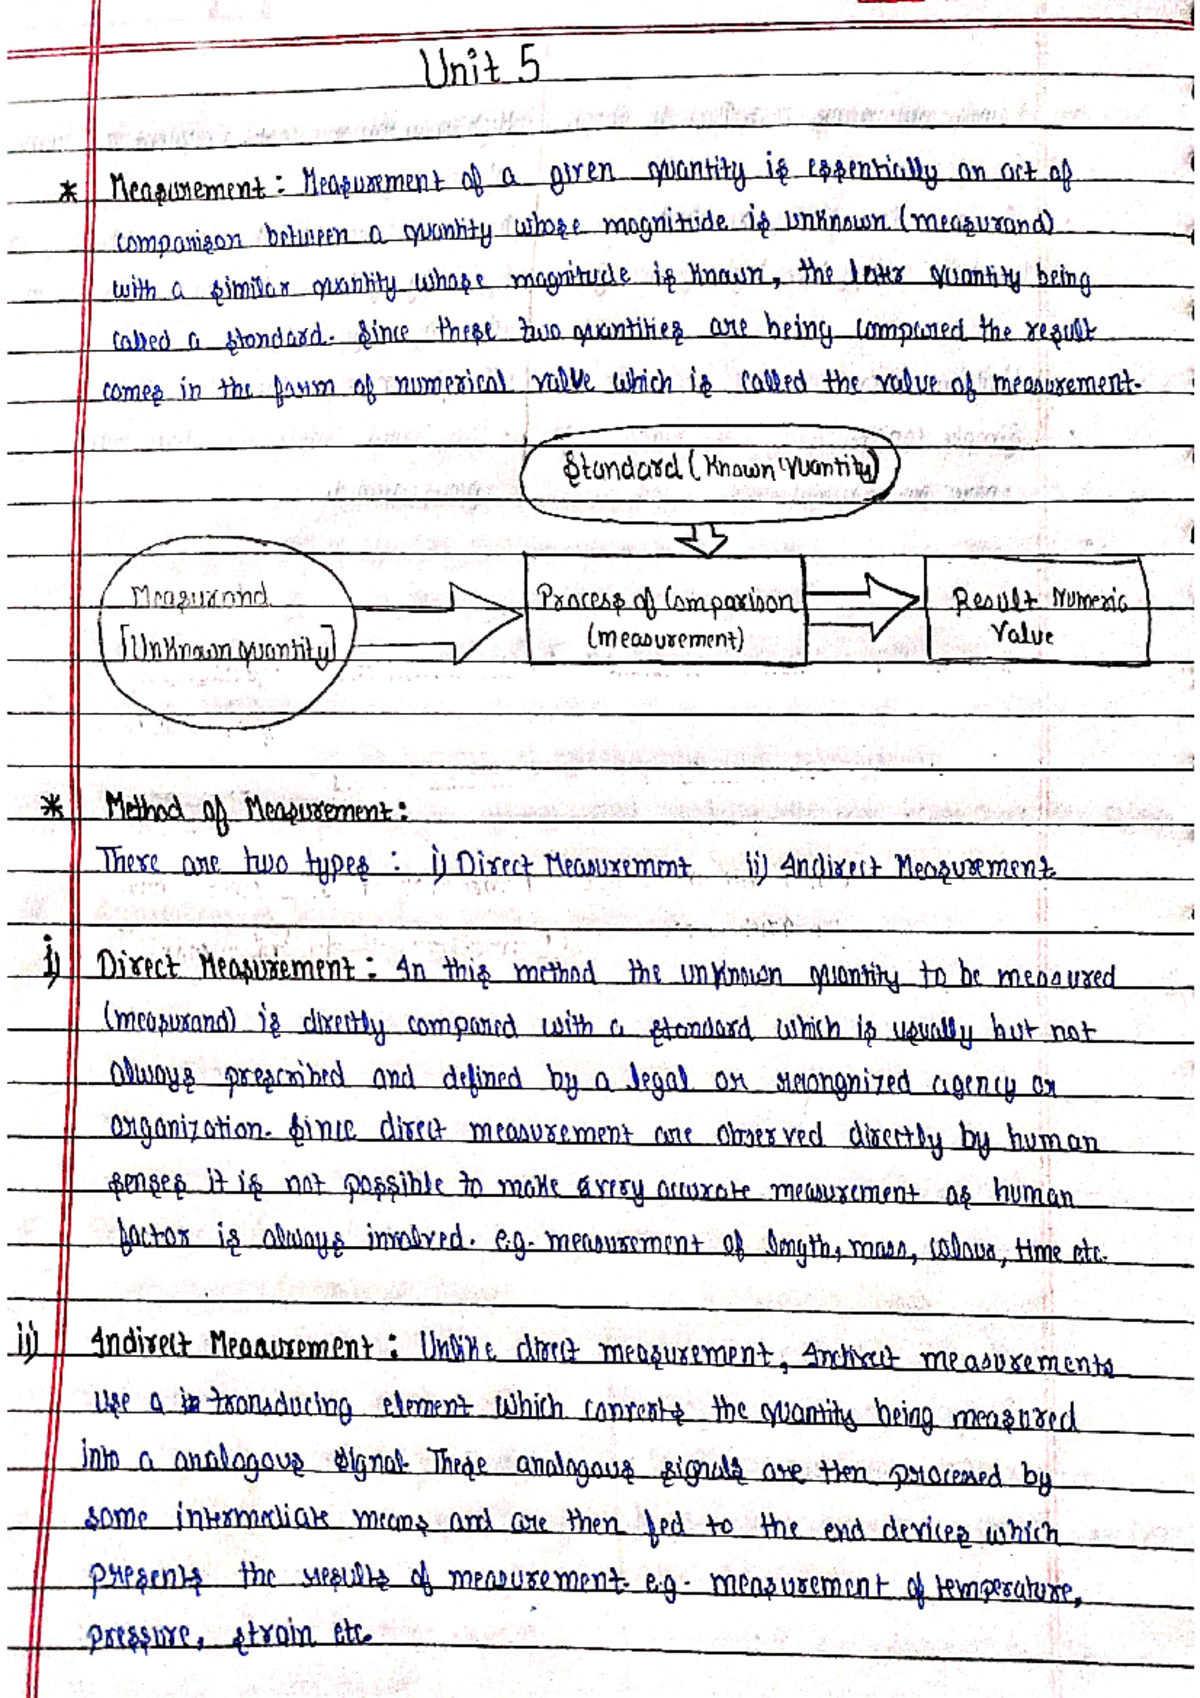 Unit 5
* Measurement: Measurement of a given quantity is essentially an act of
comparison between a quantity whose magnitude is unknown (measurand)
with a similar quantity whose magnitude is known, the later quantity being
called a standard. Since these two quantities are being compared the result
comes in the form of numerical value which is called the value of measurement.
Standard (Known Quantity)
Measurand
[Unknown quantity]
Process of Comparison
(measurement)
Result Numeric
Value
* Method of Measurement:
There are two types: i) Direct Measuremnt ii) Indirect Measurement
i) Direct Measurement: In this method the unknown quantity to be measured
(measurand) is directly compared with a standard which is usually but not
always prescribed and defined by a legal or recongnized agency or
organization. Since direct measurement are observed directly by human
senses it is not possible to make a very accurate measurement as human
factor is always involved. e.g. measurement of length, mass, colour, time etc.
ii) Indirect Measurement: Unlike direct measurement, Indirect measurements
use a transducing element which converts the quantity being measured
into a analogous signal. These analogous signals are then processed by
some intermediate means and are then fed to the end devices which
presents the results of measurement. e.g. measurement of temperature,
pressure, strain etc.